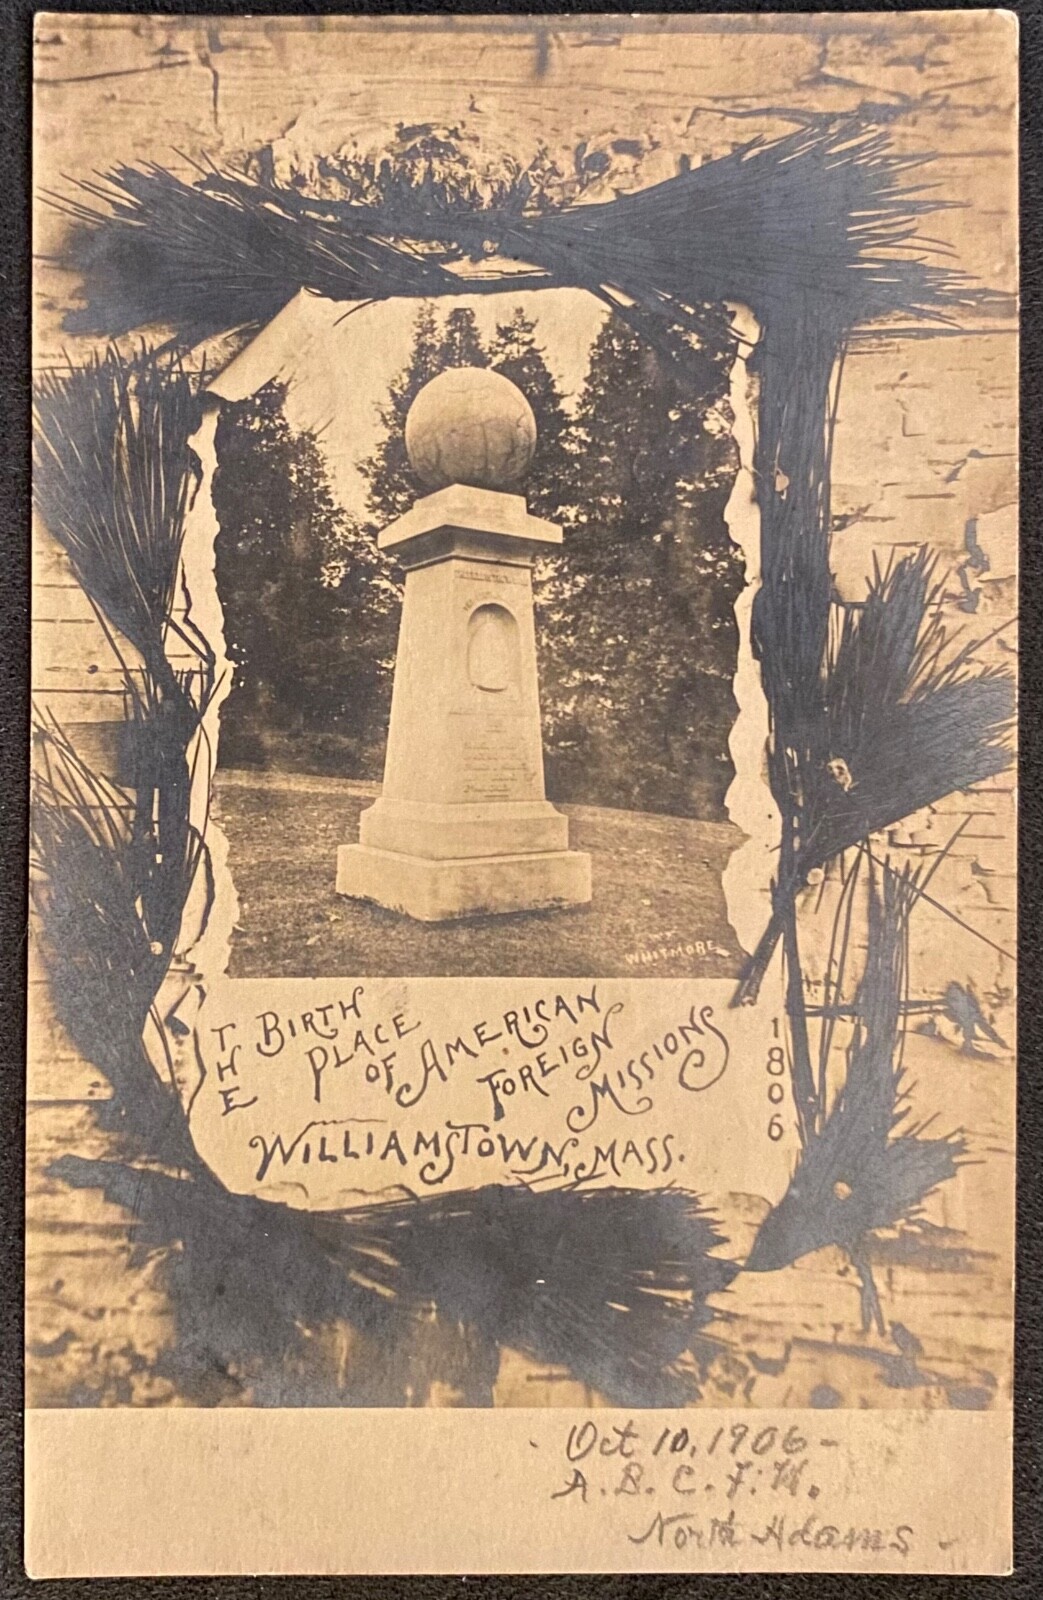 WHITMORE
THE BIRTH PLACE OF AMERICAN FOREIGN MISSIONS 1806
WILLIAMSTOWN, MASS.
Oct 10, 1906 -
A. B. C. F. M.
North Adams -